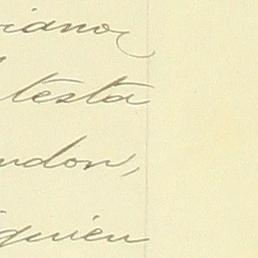 riano
testa
ndon,
guien